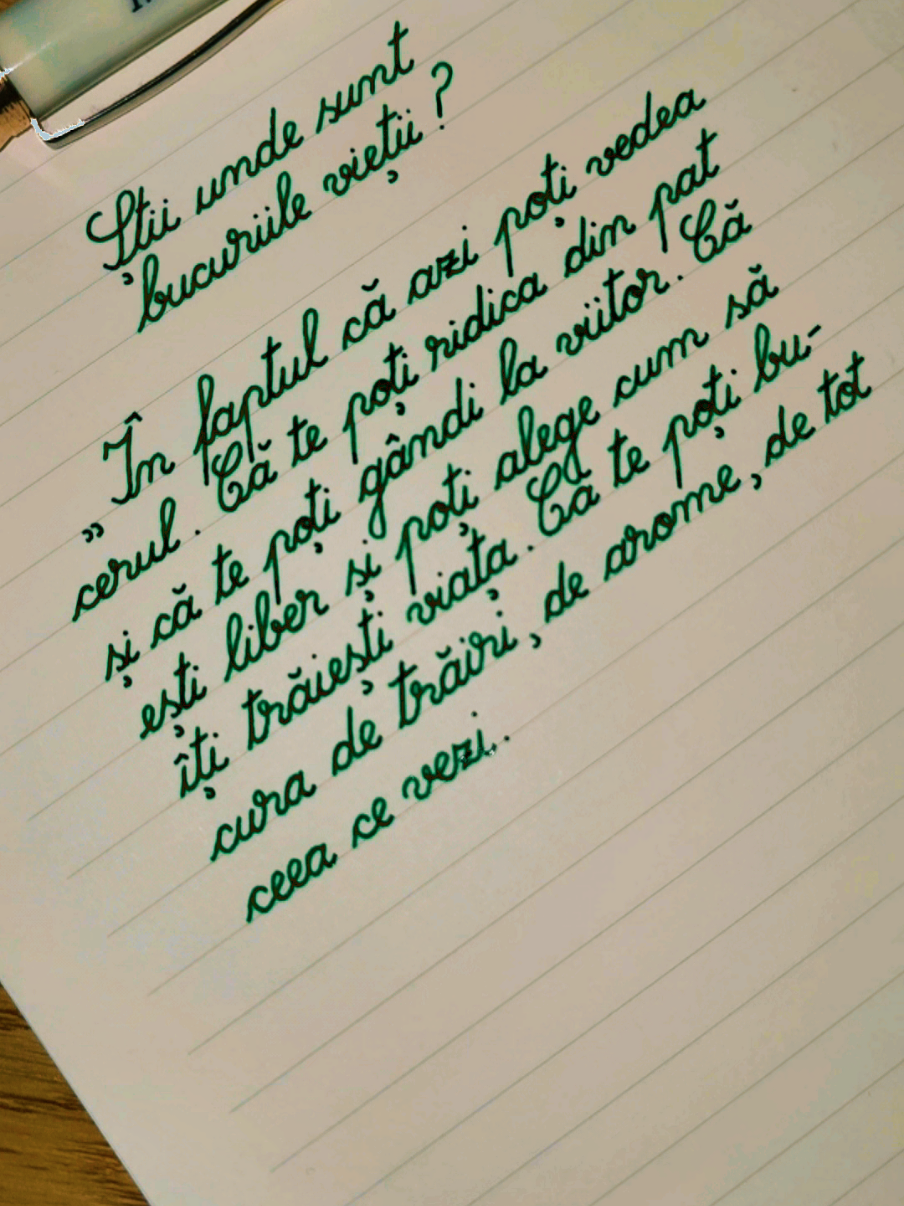 Știi unde sunt
bucuriile vieții?
„În faptul că azi poți vedea
cerul. Că te poți ridica din pat
și că te poți gândi la viitor. Că
ești liber și poți alege cum să
îți trăiești viața. Că te poți bu-
cura de trăiri, de arome, de tot
ceea ce vezi.